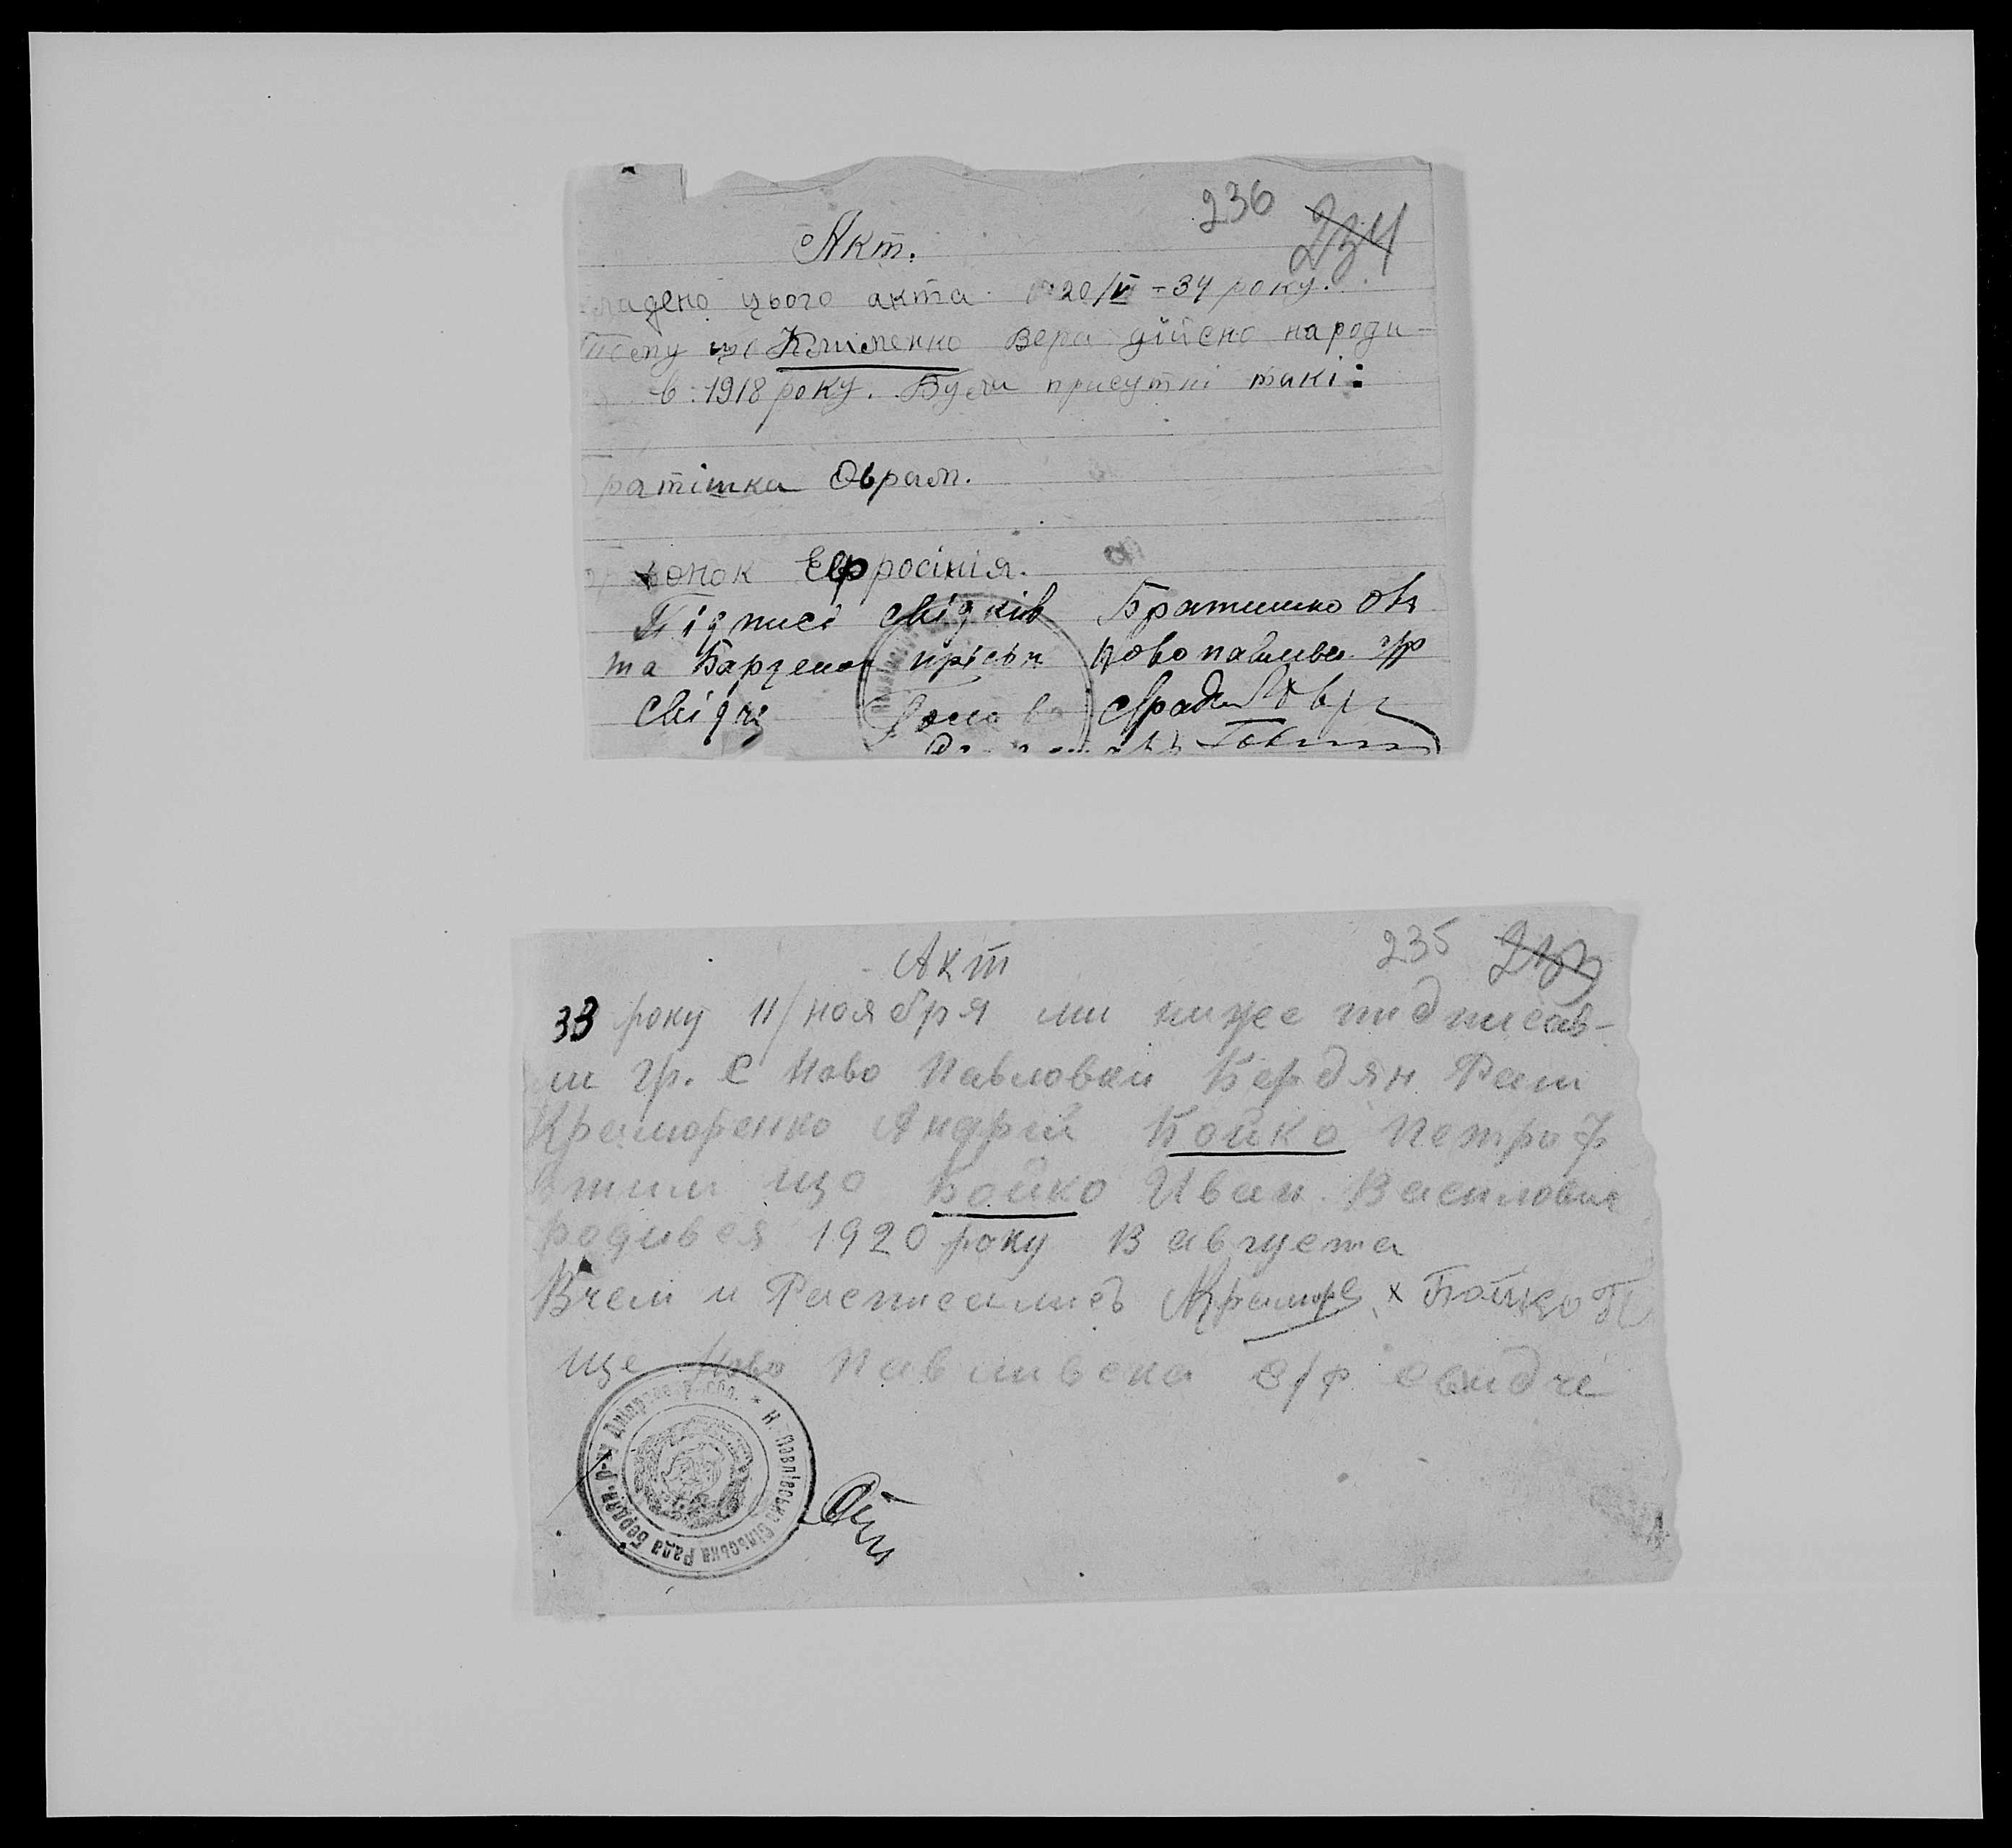 236 234
Акт.
ладено цього акта 20/V-34 року.
тому що Клименко Вера дійсно народи-
в 1918 року. Були присутні такі:
ратішка Оврам.
онок Єфросінія.
Підписі свідків Братишко Ов
та свідчі
Голова сради
235
Акт
33 року 11/ноября ми ниже подписав-
ши гр. С Ново Павловки Бердян. Раш
Краморенко Андрій Бойко Петро
що Бойко Иван Василович
родився 1920 року 13 августа
Вчем и Расписались Краморе х Бойко П
ще Ново Павливска с/р свидче
Н. Павлівська Сільська Рада Бердян. р-ну Дніпропетр. обл.